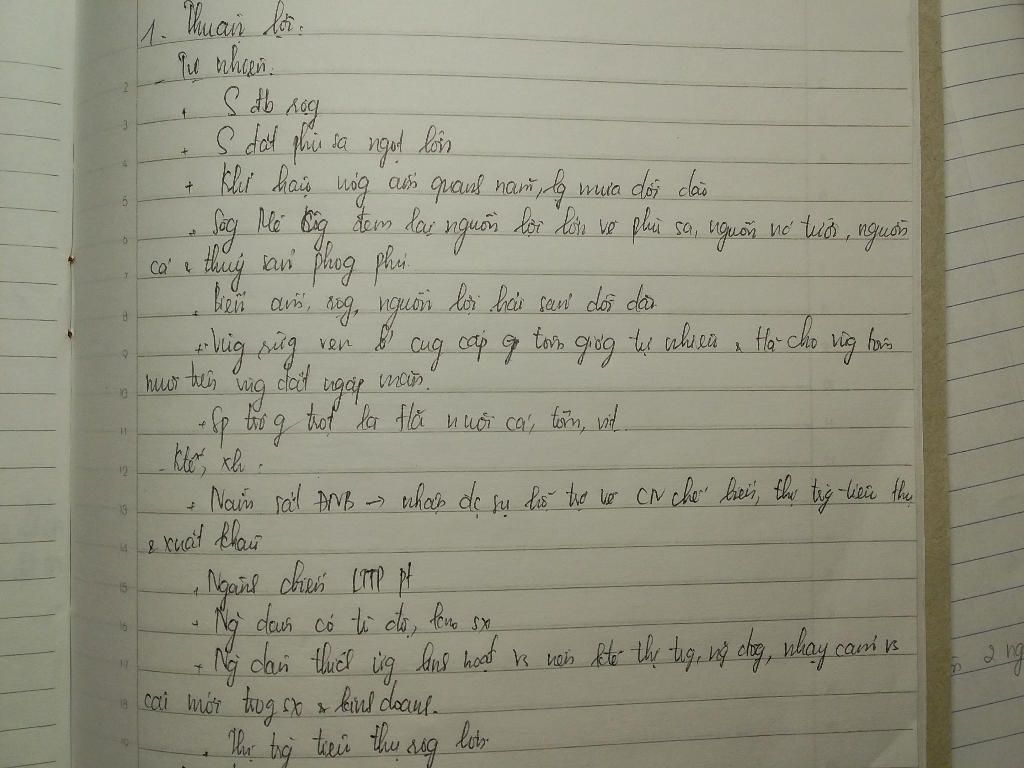 1. Thuận lợi:
- Tự nhiên:
+ S đb rộg
+ S đất phù sa ngọt lớn
+ Khí hậu nóg ẩm quanh năm, lg mưa dồi dào
+ Sôg Mê Côg đem lại nguồn lợi lớn về phù sa, nguồn nc tưới, nguồn
cá & thuỷ sản phog phú.
+ Biển ấm, rộg, nguồn lợi hải sản dồi dào
+ Vùg rừg ven B cug cấp g tôm giốg tự nhiên & tă cho vùg tôm
nuôi trên vùg đất ngập mặn.
+ Sp trồg trọt là tă nuôi cá, tôm, vịt.
- Ktế, xh:
+ Nằm sát ĐNB → nhận đc sự hỗ trợ về CN chế biến, thị trg tiêu thụ
& xuất khẩu
+ Ngành chế biến LTTP pt
+ Ng dân có tr độ, sx
+ Ng dân thích ứg linh hoạt vs nền ktế thị trg, nă độg, nhạy cảm vs
cái mới trog sx & kinh doanh.
+ Thị trg tiêu thụ rộg lớn
2 ng